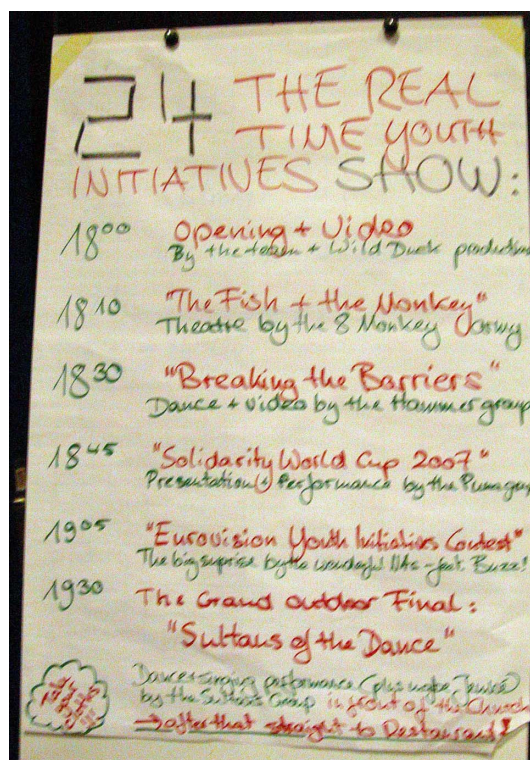 24 THE REAL
TIME YOUTH
INITIATIVES SHOW:
18⁰⁰ Opening + Video
By the team + Wild Duck production
18¹⁰ "The Fish + the Monkey"
Theatre by the 8 Monkey Army
18³⁰ "Breaking the Barriers"
Dance + video by the Hammer group
18⁴⁵ "Solidarity World Cup 2007"
Presentation + Performance by the
19⁰⁵ "Eurovision Youth Initiatives Contest"
The big surprise by the wonderful NAs - feat. Buzz!
19³⁰ The Grand outdoor Final:
"Sultans of the Dance"
Dance + singing performance (plus maybe
by the Group in front of the Church
→ after that straight to Restaurant!